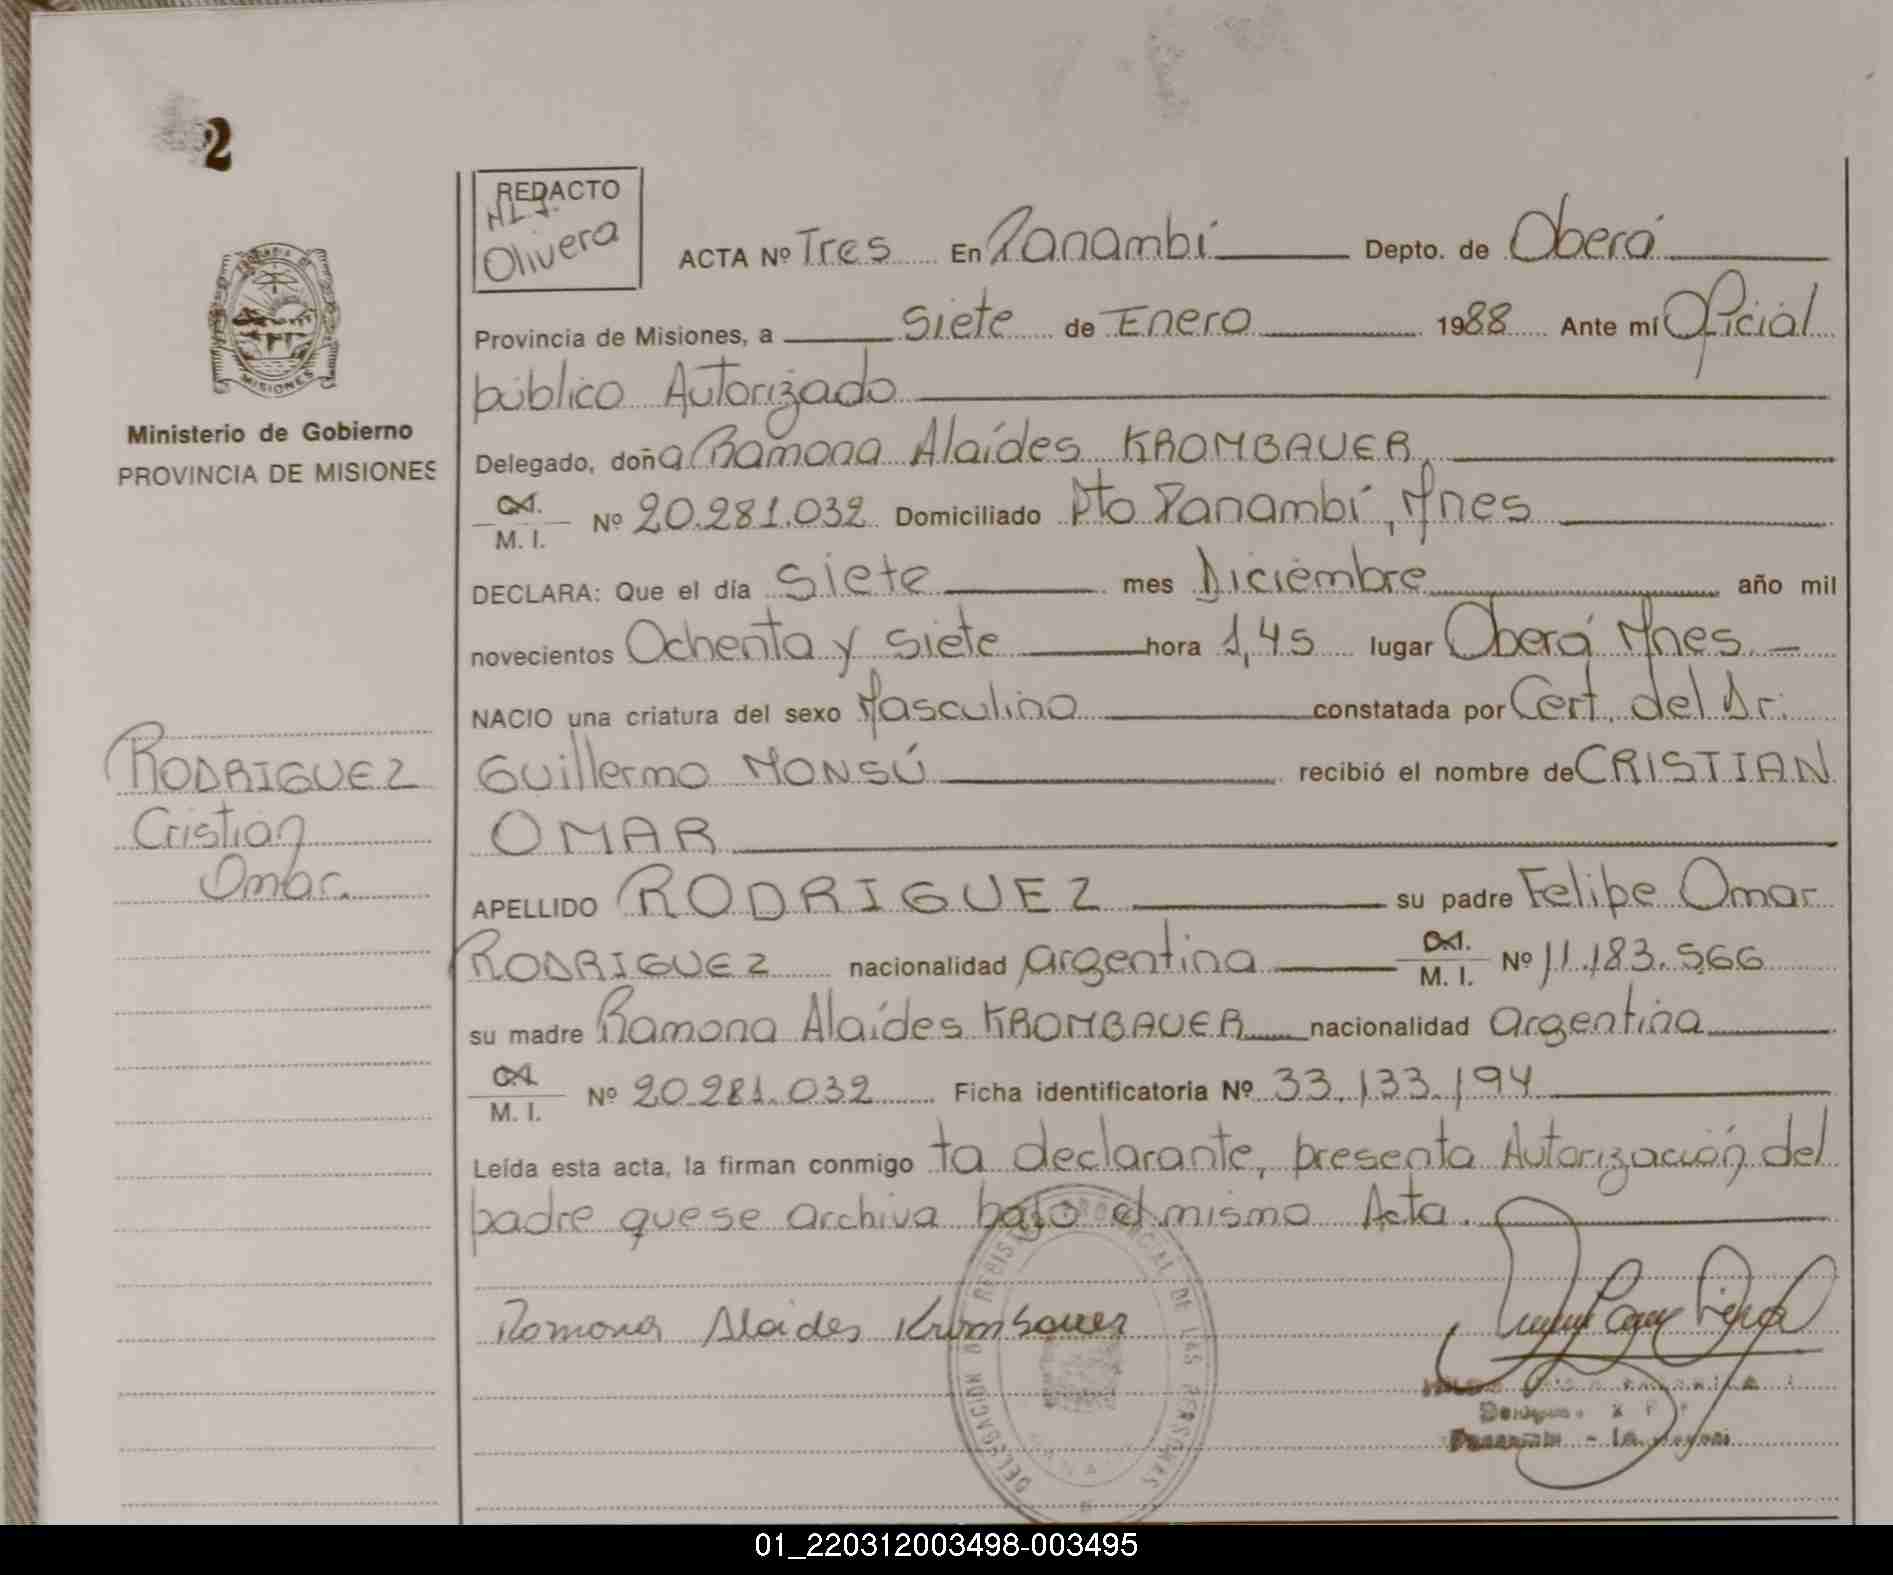 2
REDACTO
Olivera
ACTA Nº Tres En Panambí Depto. de Oberá
Provincia de Misiones, a Siete de Enero 1988 Ante mí Oficial
público Autorizado
Delegado, doña Ramona Alaídes KROMBAUER
C.I. M. I. Nº 20.281.032 Domiciliado Pto Panambí, Mnes
DECLARA: Que el día Siete mes Diciembre año mil
novecientos Ochenta y siete hora 1,45 lugar Oberá Mnes.
NACIO una criatura del sexo Masculino constatada por Cert. del Dr.
Guillermo MONSÚ recibió el nombre de CRISTIAN
OMAR
APELLIDO RODRIGUEZ su padre Felipe Omar
RODRIGUEZ nacionalidad argentina C.I. M. I. Nº 11.183.566
su madre Ramona Alaídes KROMBAUER nacionalidad Argentina
C.I. M. I. Nº 20.281.032 Ficha identificatoria Nº 33.133.194
Leída esta acta, la firman conmigo la declarante, presenta Autorización del
padre que se archiva bajo el mismo Acta.
Ramona Alaides Krumbauer
MISIONES
Ministerio de Gobierno
PROVINCIA DE MISIONES
RODRIGUEZ
Cristian
Omar.
DELEGACIÓN DE REGISTRO PROVINCIAL DE LAS PERSONAS
01_220312003498-003495